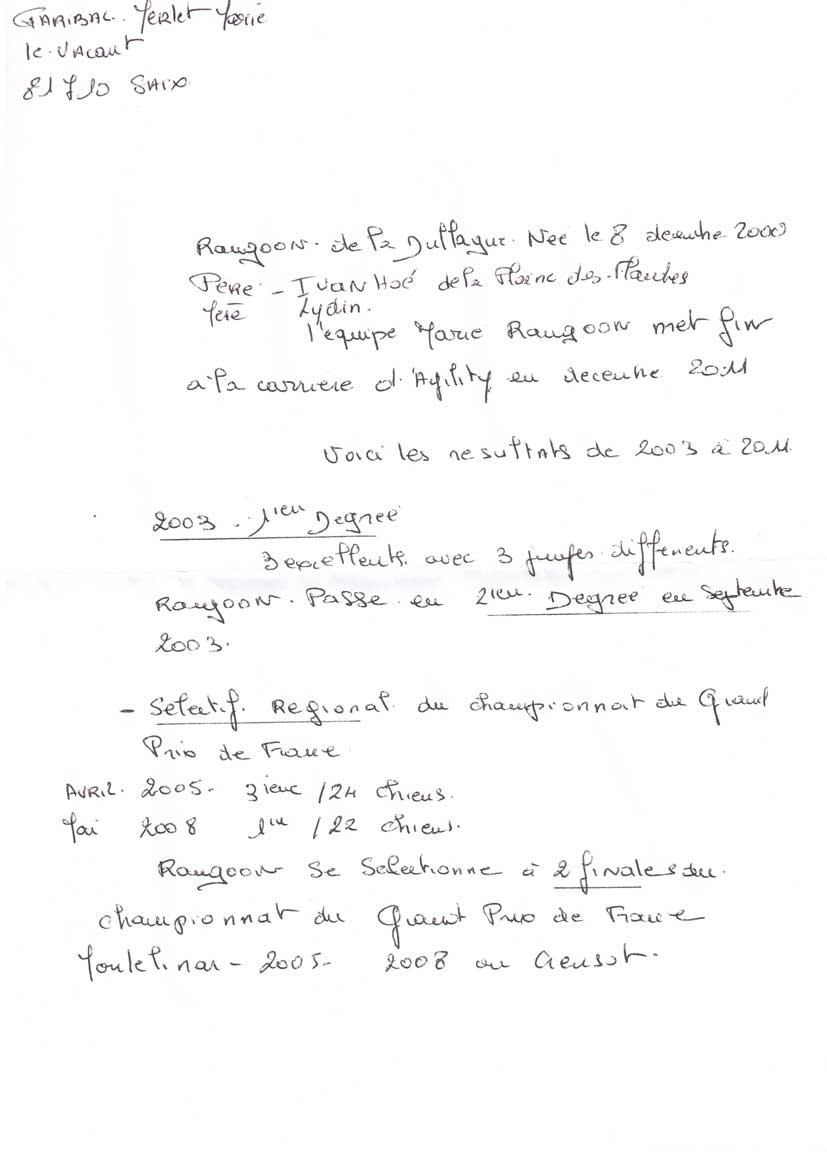 GARIBAL. Merlet Marie
le. Vacant
81710 SAIX
Rangoon. de la Duflague. Nee le 8 decembre 2000
Pere - Ivanhoé de la Plaine des. Marches
Mere Lydin.
l'équipe Marie Rangoon met fin
a la carriere d'Agility en decembre 2011
Voici les resultats de 2003 à 2011
2003 - 1ieu Degree
3 excellents. avec 3 juges. differents.
Rangoon. Passe en 2ieu. Degree en Septembre
2003.
- Selectif. Regional du championnat du Grand
Prix de France
AVRIL. 2005- 3ieme / 24 chiens.
Mai 2008 1ere / 22 chiens.
Rangoon se selectionne à 2 finales du.
championnat du Grand Prix de France
- 2005- 2008 au Creusot.